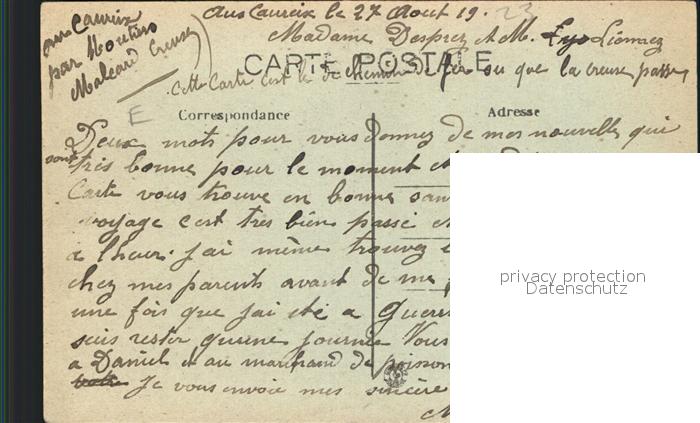 aux Caureix
par Moutiers
Malcard Creuse
aux Caureix le 27 Aout 19. 23
Madame Desprez et M. Lionnez
CARTE POSTALE
cette Carte est le de chemin de fer ou que la creuse passe
E
Correspondance
Adresse
Deux mots pour vous donnez de mes nouvelles qui
sont très bonne pour le moment et
Carte vous trouve en bonne san
voyage c'est très bien passé et
a l'heure. j'ai même trouvez
chez mes parents avant de me
une fois que j'ai été a Guer
suis rester qu'une journée Vous
a Daniel et au marchand de poisson
Je vous envoie mes sincère
privacy protection
Datenschutz